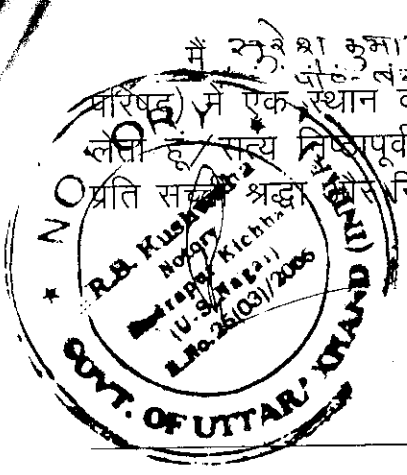 मैं सुरेश कुमा
परिषद) में एक स्थान
लेता हूं/सत्य निष्ठापूर्व
प्रति सच्ची श्रद्धा और
NOTARY
R.B. Kushwaha
Notary
Rudrapur Kichha
(U.S. Nagar)
R.No. 26(03)/2006
(INDIA)
GOVT. OF UTTARAKHAND